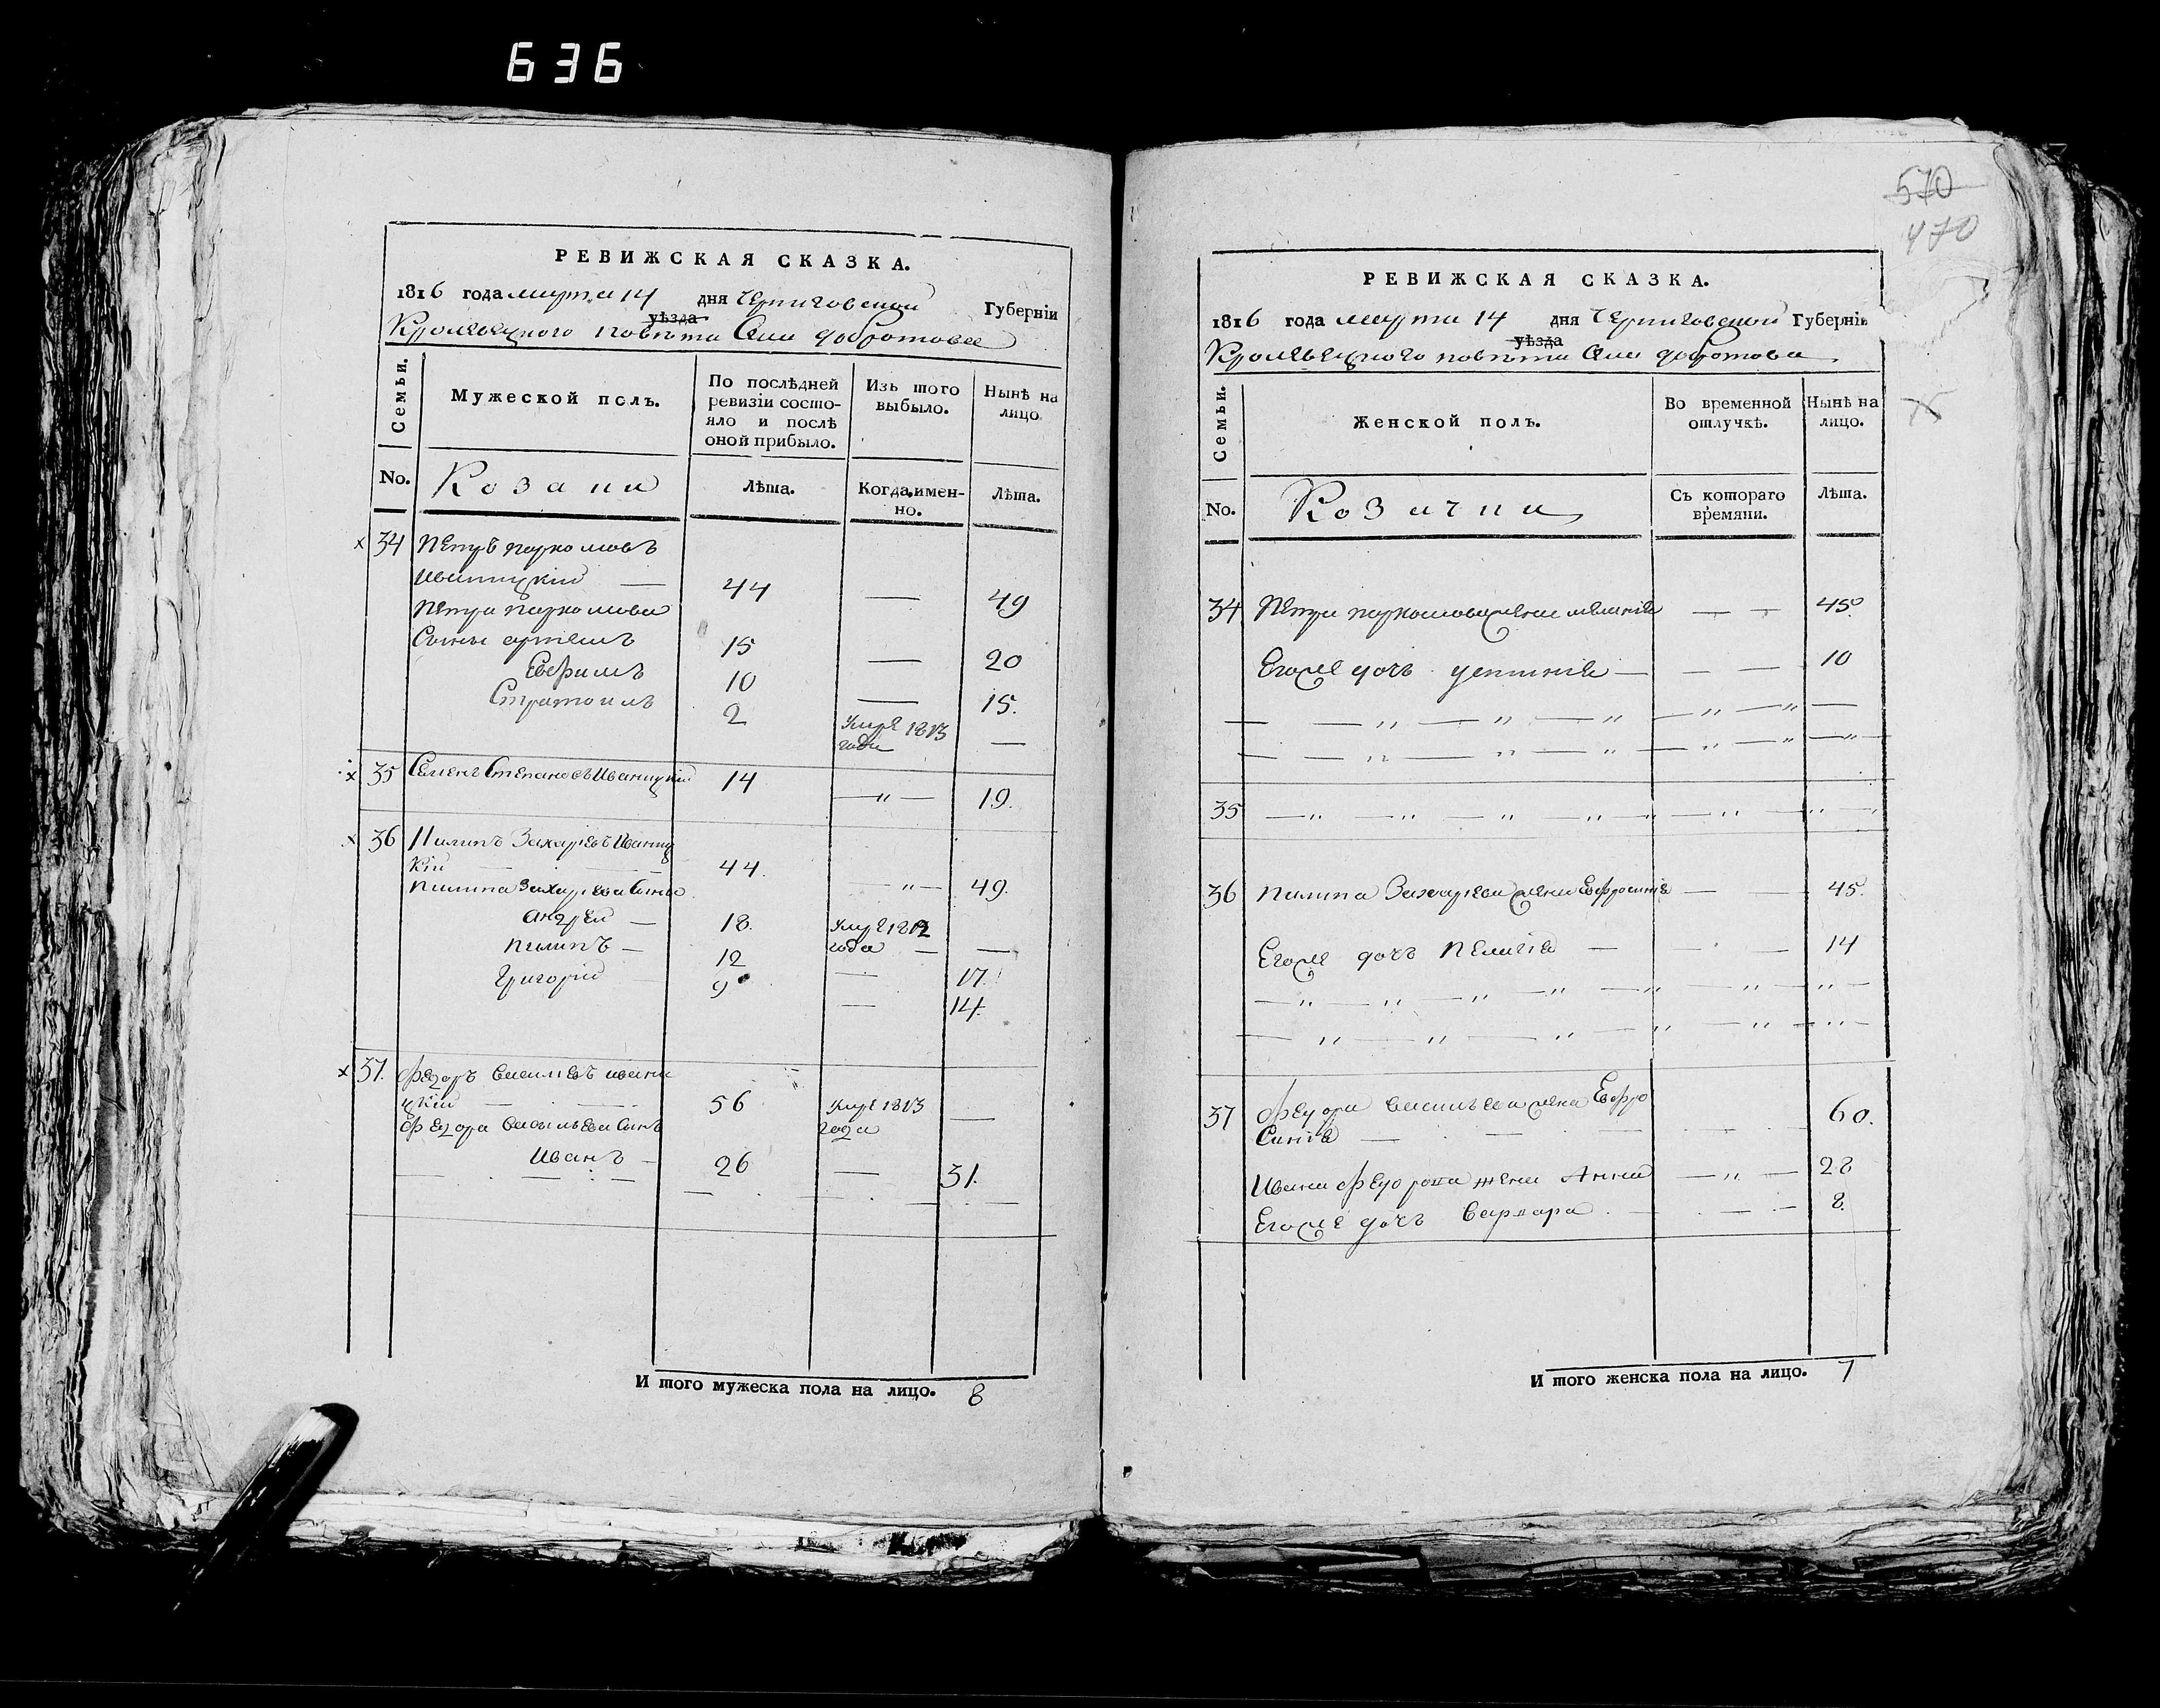 636
РЕВИЖСКАЯ СКАЗКА.
1816 года марта 14 дня Черниговской Губернїи
уѣзда
Кролевецкого повѣта Села Добротова
Семьи.
Мужеской полъ.
По послѣдней ревизїи состо-
яло и послѣ
оной прибыло.
Изъ того
выбыло.
Нынѣ на
лицо
No.
Козаки
Лѣта.
Когда, имен-
но.
Лѣта.
х 34 Петръ Пархомовъ
Иваницкий — 44 — 49
Петра Пархомова
Сыны Артемъ 15 — 20
Евфимъ 10 — 15.
Стратонъ 2 умре 1813
года —
х 35 Семенъ Степановъ Иваницкий 14 — " — 19.
х 36 Пилипъ Захариевъ Иваниц
кий — 44. — " — 49.
Пилипа Захариева Сыны
Андрей — 18. умре 1812
года — —
Пилипъ — 12 — 17.
Григорий 9 — 14.
х 37. Федоръ Василевъ Ивани
цкий — 56 умре 1813
года —
Федора Василева Сынъ
Иванъ — 26 — 31.
И того мужеска пола на лицо. 8
570
470
РЕВИЖСКАЯ СКАЗКА.
1816 года марта 14 дня Черниговской Губернїи
уѣзда
Кролевецкого повѣта Села Добротова
х
Семьи.
Женской полъ.
Во временной
отлучкѣ.
Нынѣ на
лицо.
No.
Козачки
Съ котораго
времяни.
Лѣта.
34 Петра Пархомова жена Меланія — — 45.
Его же дочь Устинія — — — 10
35 — " — " — " — " — " — " —
36 Пилипа Захариева жена Евфросинія — — 45.
Его же дочь Пелагія — — — 14
37 Федора Василева жена Евфро
Синія — — — 60.
Ивана Федорова жена Анна — " — 28
Его же дочь Варвара . — — 8.
И того женска пола на лицо. 7